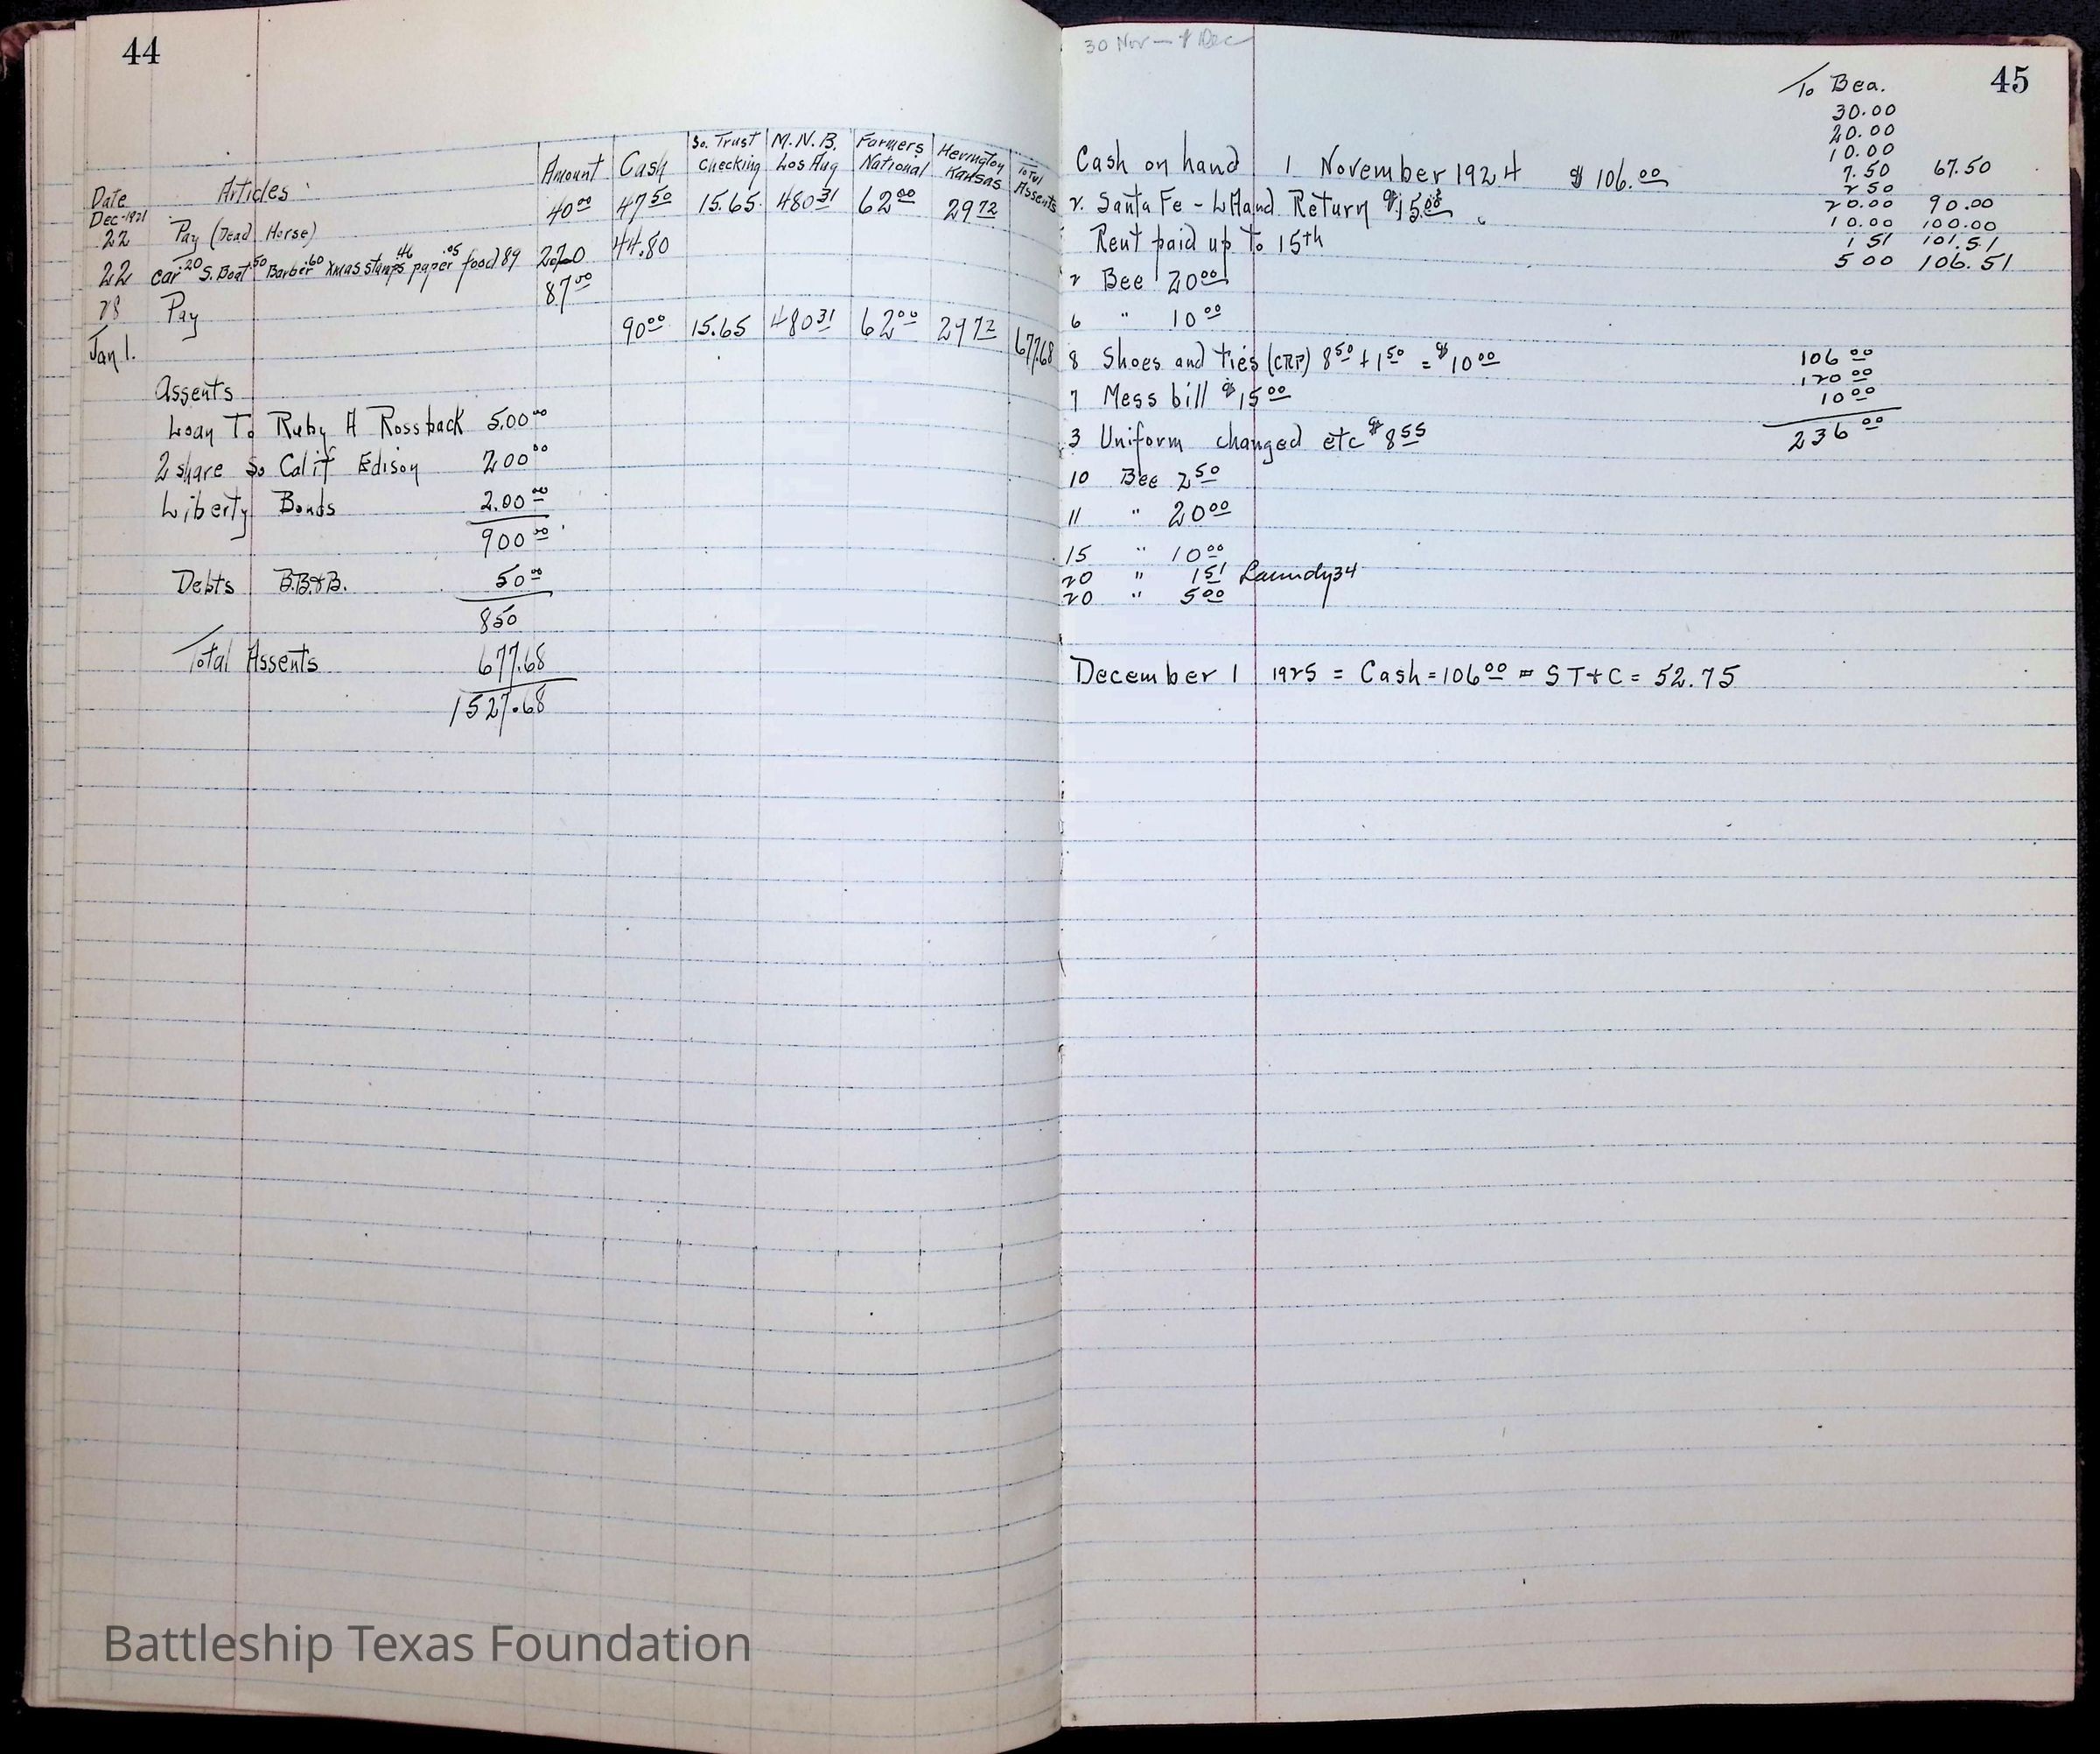 44
So. Trust M.N.B. Farmers Herington Total
Date Articles Amount Cash Checking Los Ang National Kansas Assents
Dec-1921 47 50 15.65 480 31 62 00 29 72
22 Pay (Dead Horse) 40 00
22 Car 20 S. Boat 50 Barber 60 Xmas stamps 46 paper .05 food 89 2.70 44.80
28 Pay 87 00
Jan 1. 90 00 15.65 480 31 62 00 29 72 677.68
Assents
Loan To Ruby A Rossback 500 00
2 share So Calif Edison 200 00
Liberty Bonds 200 00
900 00
Debts B.B.&B. 50 00
850
Total Assents 677.68
1527.68
Battleship Texas Foundation
30 Nov — Dec
45
To Bea.
30.00
20.00
10.00
7.50 67.50
2 50
20.00 90.00
10.00 100.00
1 51 101.51
5 00 106.51
Cash on hand 1 November 1924 $ 106.00
2. Santa Fe - Return
Rent paid up to 15th
2 Bee 20 00
6 " 10 00
8 Shoes and ties (CRP) 8 50 + 1 50 = $10 00
7 Mess bill $15 00
3 Uniform changed etc $8 55
10 Bee 2 50
11 " 20 00
15 " 10 00
20 " 1 51 Laundry 34
20 " 5 00
106 00
120 00
10 00
236 00
December 1 1925 = Cash = 106 00 = ST+C = 52.75